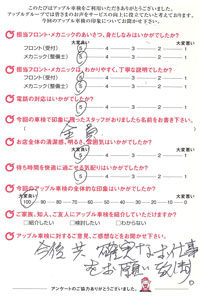 このたびはアップル車検をご利用いただきありがとうございました。
アップルグループでは皆さまのお声をサービスの向上に役立てたいと考えております。
今回のアップル車検の印象についてお聞かせ下さい。
担当フロント・メカニックのあいさつ、身だしなみはいかがでしたか?
大変良い 大変悪い
フロント(受付) 5 4 3 2 1
メカニック(整備士) 5 4 3 2 1
担当フロント・メカニックは、わかりやすく、丁寧な説明でしたか?
大変良い 大変悪い
フロント(受付) 5 4 3 2 1
メカニック(整備士) 5 4 3 2 1
電話の対応はいかがでしたか?
大変良い 大変悪い
5 4 3 2 1
今回の車検で印象に残ったスタッフがおりましたら名前をお書き下さい。
( 全員 )
お店全体の清潔感、明るさ、雰囲気はいかがでしたか?
大変良い 大変悪い
5 4 3 2 1
待ち時間を快適に過ごせる気配りはいかがでしたか?
大変良い 大変悪い
5 4 3 2 1
今回のアップル車検の全体的な印象はいかがでしたか?
大変良い 大変悪い
100 90 80 70 60 50 40 30 20 10 0
ご家族、知人、ご友人にアップル車検を紹介していただけますか?
□紹介したい □検討する □わからない
アップル車検に対するご意見、ご感想などをお聞かせ下さい。
今後共 確実なお仕事
をお願い致します。
アンケートのご協力ありがとうございました。